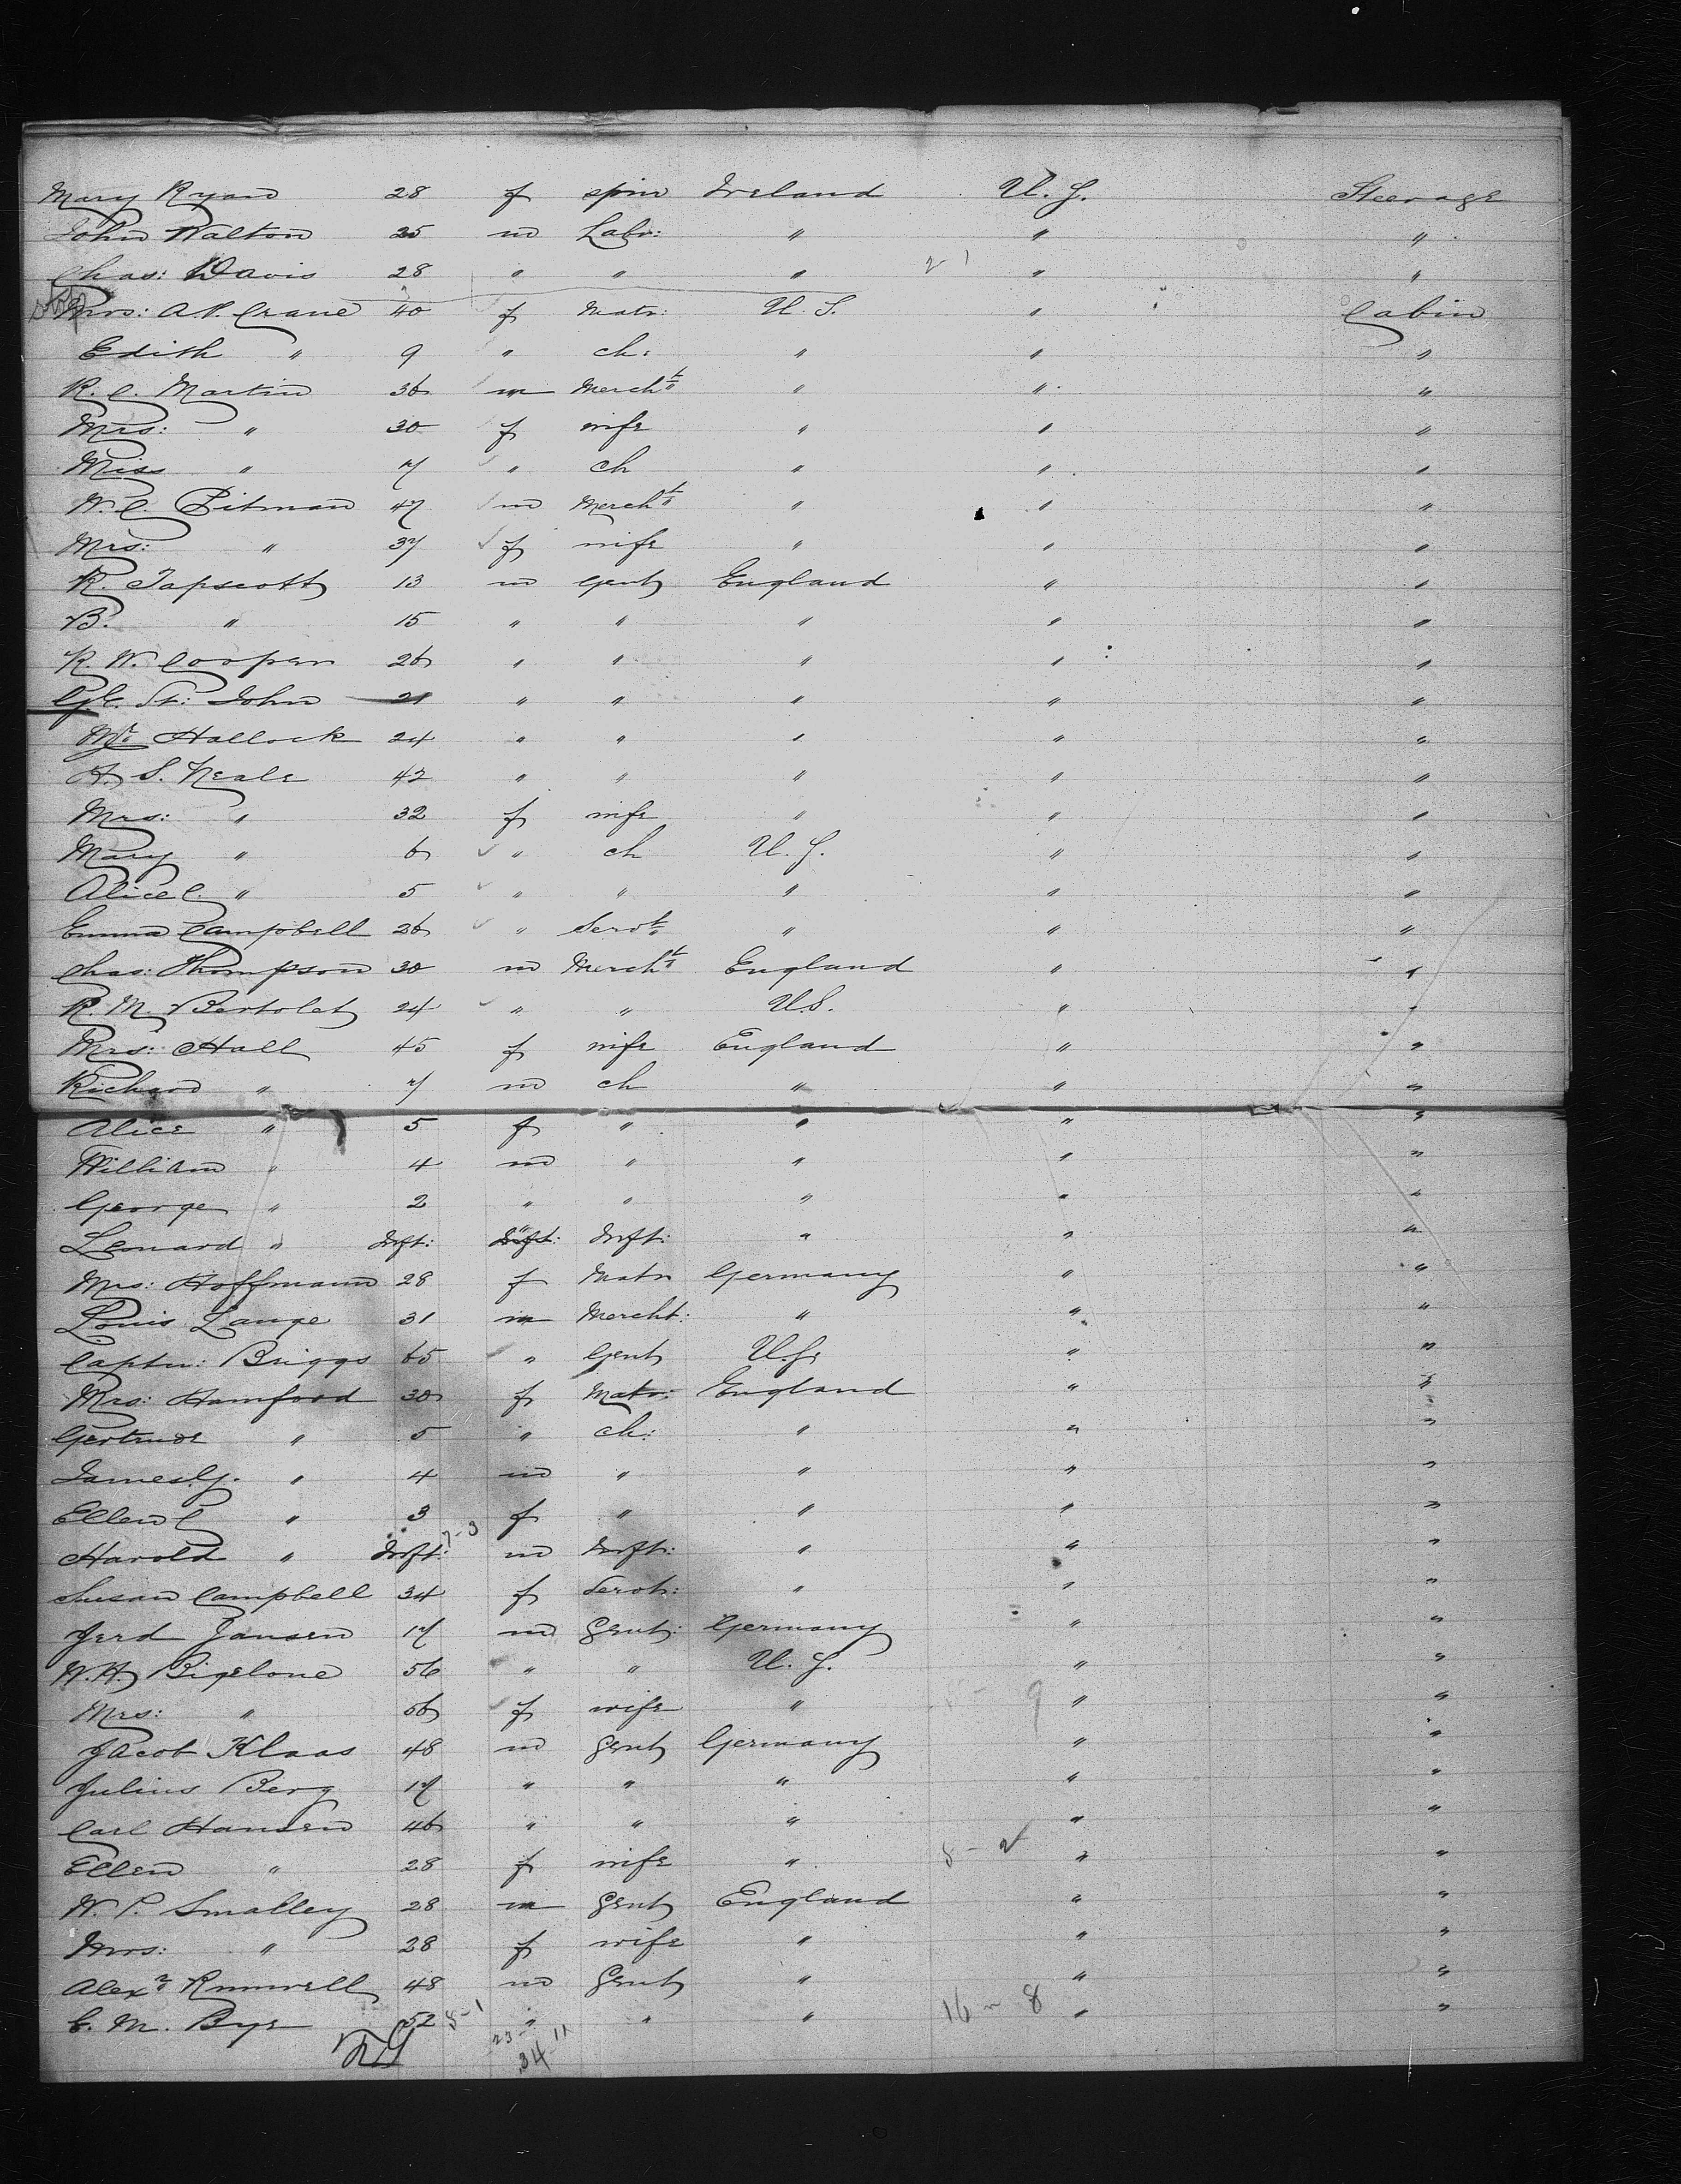 Mary Ryan 28 f spin Ireland U. S. Steerage
John Walton 25 m Labr: " " "
Chas: Davis 28 " " " " "
Mrs: A. P. Crane 40 f Matr: U. S. " Cabin
Edith " 9 " ch: " " "
R. C. Martin 36 m Mercht " " "
Mrs: " 30 f wife " " "
Miss " 7 " ch " " "
W. C. Pitman 47 m Mercht " " "
Mrs: " 37 f wife " " "
R. Tapscott 13 m Gent England " "
B. " 15 " " " " "
R. W. Cooper 26 " " " " "
St: John 21 " " " " "
Mr Hallock 24 " " " " "
A. S. Neale 42 " " " " "
Mrs: " 32 f wife " " "
Mary " 6 " ch U. S. " "
Alice C. " 5 " " " " "
Emma Campbell 26 " Servt " " "
Chas: Thompson 30 m Mercht England " "
R. M. Bertolet 24 " " U.S. " "
Mrs: Hall 45 f wife England " "
Richard " 7 m ch " " "
Alice " 5 f " " " "
William " 4 m " " " "
George " 2 " " " " "
Lenard " Inft: " Inft: " " "
Mrs: Hoffmann 28 f Matr Germany " "
Louis Lange 31 m Mercht: " " "
Captn: Briggs 65 " Gent U.S. " "
Mrs: Hamford 30 f Matr: England " "
Gertrude " 5 " ch: " " "
James G. " 4 m " " " "
Ellen C " 3 f " " " "
Harold " Inft: 7-3 m Inft: " " "
Susan Campbell 34 f Servt: " " "
Jerd Jansen 17 m Gent: Germany " "
W. H. Bigelone 56 " " U. S. " "
Mrs: " 56 f wife " 9 " "
Jacob Klaas 48 m Gent Germany " "
Julius Berg 17 " " " " "
Carl Hansen 46 " " " " "
Ellen " 28 f wife " 8-2 " "
W. P. Smalley 28 m Gent England " "
Mrs: " 28 f wife " " "
Alexr Rumwell 48 m Gent " " "
C. M. Bye 52 8-1 " " " 16-8 " "
23-11
34